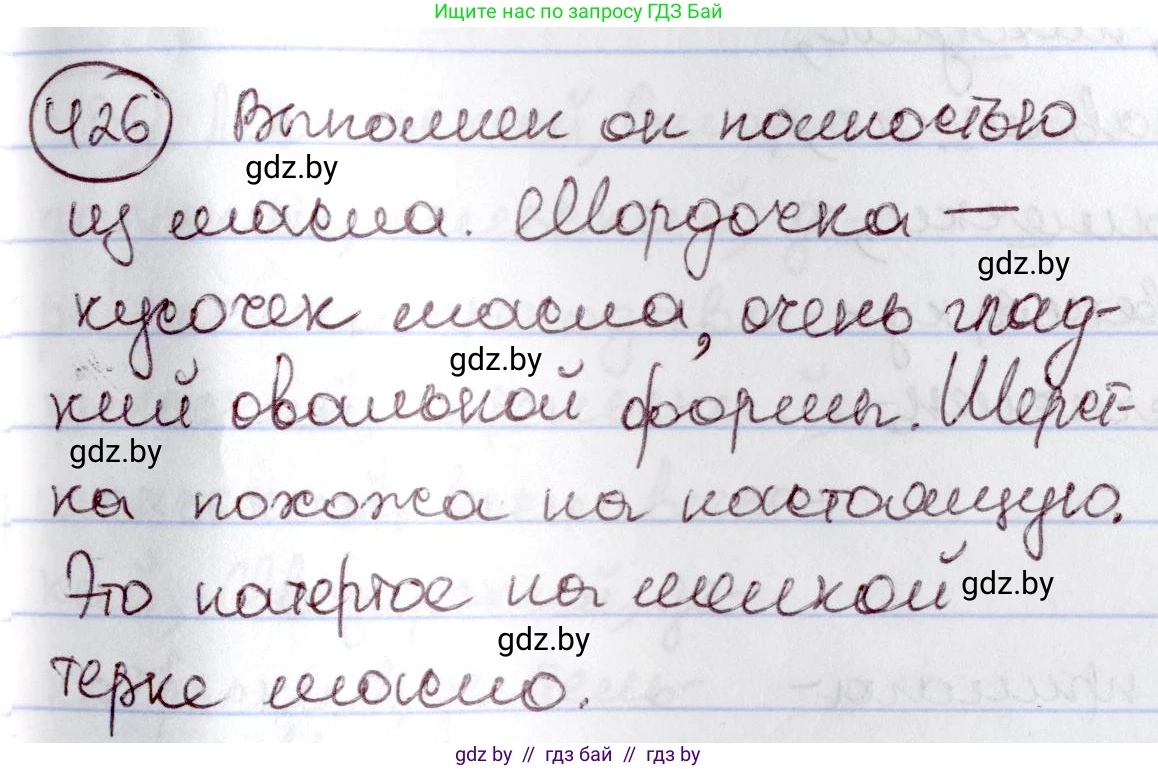 Ищите нас по запросу ГДЗ Бай
426 Выполнен он полностью
gdz.by
из масла. Мордочка —
gdz.by
кусочек масла, очень глад-
gdz.by
кий овальной формы. Шерст-
gdz.by
ка похожа на настоящую.
Это натертое на мелкой
gdz.by
gdz.by
терке масло.
gdz.by // гдз бай // гдз by